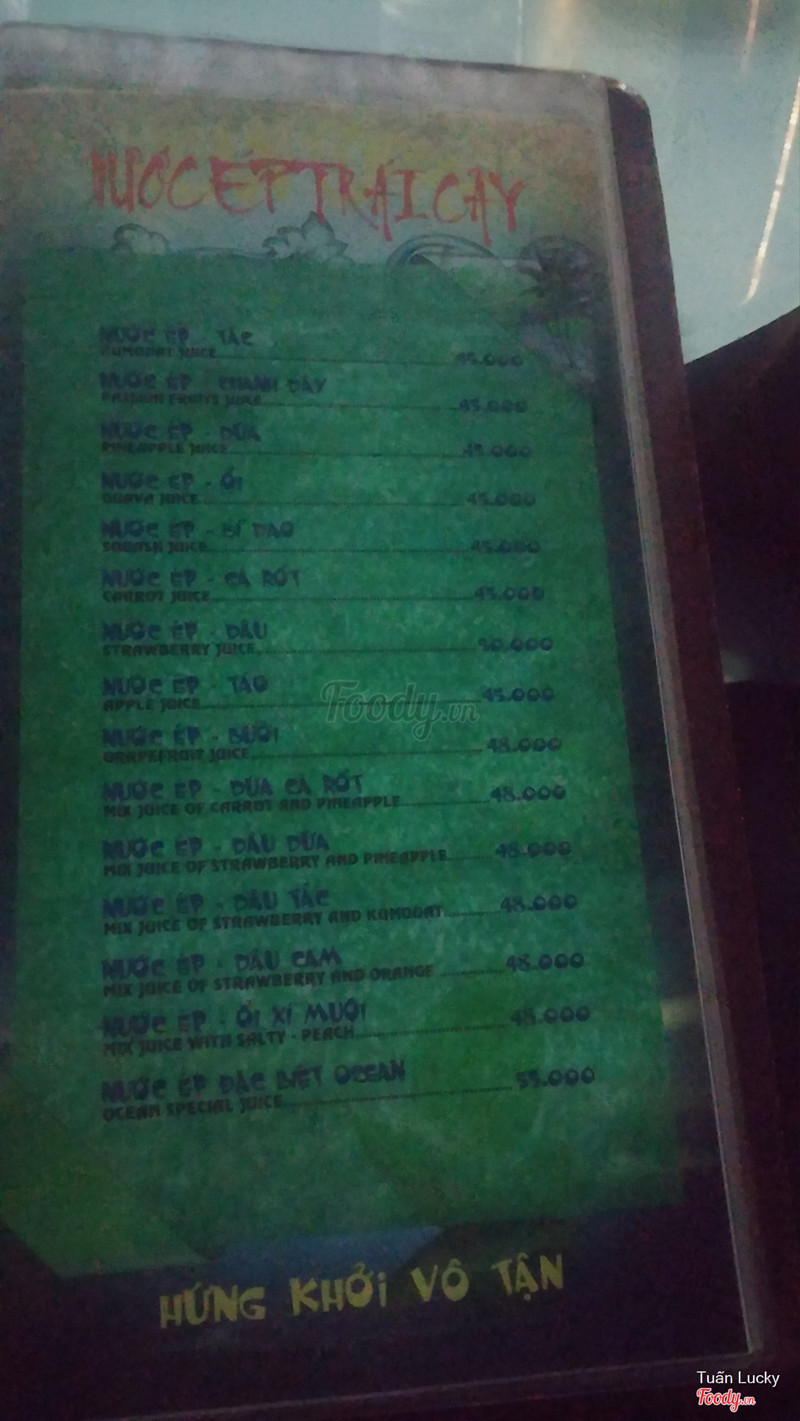 NƯỚC ÉP TRÁI CÂY
NƯỚC ÉP - TẮC
KUMODAT JUICE 45.000
NƯỚC ÉP - CHANH DÂY
PASSION FRUITS JUICE 45.000
NƯỚC ÉP - DỨA
PINEAPPLE JUICE 45.000
NƯỚC ÉP - ỔI
GUAVA JUICE 45.000
NƯỚC ÉP - BÍ ĐAO
SQUASH JUICE 45.000
NƯỚC ÉP - CÀ RỐT
CARROT JUICE 45.000
NƯỚC ÉP - DÂU
STRAWBERRY JUICE 50.000
NƯỚC ÉP - TÁO
APPLE JUICE 45.000
NƯỚC ÉP - BƯỞI
GRAPEFRUIT JUICE 48.000
NƯỚC ÉP - DỨA CÀ RỐT
MIX JUICE OF CARROT AND PINEAPPLE 48.000
NƯỚC ÉP - DÂU DỨA
MIX JUICE OF STRAWBERRY AND PINEAPPLE 48.000
NƯỚC ÉP - DÂU TẮC
MIX JUICE OF STRAWBERRY AND KUMODAT 48.000
NƯỚC ÉP - DÂU CAM
MIX JUICE OF STRAWBERRY AND ORANGE 48.000
NƯỚC ÉP - ỔI XÍ MUỘI
MIX JUICE WITH SALTY - PEACH 48.000
NƯỚC ÉP ĐẶC BIỆT OCEAN
OCEAN SPECIAL JUICE 55.000
HỨNG KHỞI VÔ TẬN
Foody.vn
Tuấn Lucky
Foody.vn